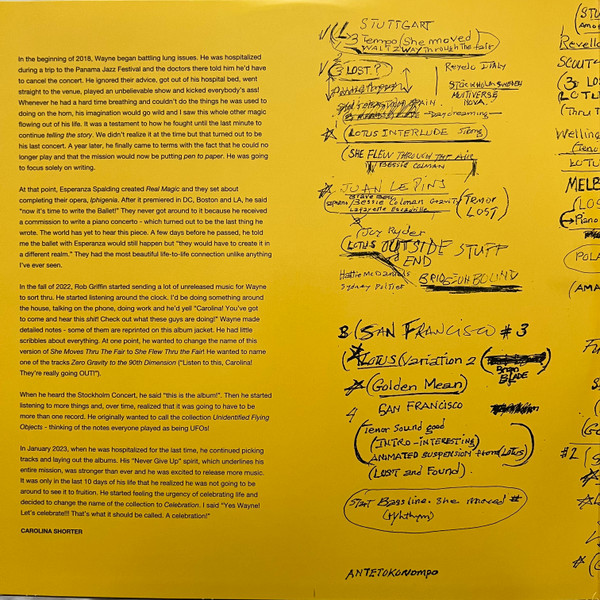 In the beginning of 2018, Wayne began battling lung issues. He was hospitalized
during a trip to the Panama Jazz Festival and the doctors there told him he'd have
to cancel the concert. He ignored their advice, got out of his hospital bed, went
straight to the venue, played an unbelievable show and kicked everybody's ass!
Whenever he had a hard time breathing and couldn't do the things he was used to
doing on the horn, his imagination would go wild and I saw this whole other magic
flowing out of his life. It was a testament to how he fought until the last minute to
continue telling the story. We didn't realize it at the time but that turned out to be
his last concert. A year later, he finally came to terms with the fact that he could no
longer play and that the mission would now be putting pen to paper. He was going
to focus solely on writing.
At that point, Esperanza Spalding created Real Magic and they set about
completing their opera, Iphigenia. After it premiered in DC, Boston and LA, he said
"now it's time to write the Ballet!" They never got around to it because he received
a commission to write a piano concerto - which turned out to be the last thing he
wrote. The world has yet to hear this piece. A few days before he passed, he told
me the ballet with Esperanza would still happen but "they would have to create it in
a different realm." They had the most beautiful life-to-life connection unlike anything
I've ever seen.
In the fall of 2022, Rob Griffin started sending a lot of unreleased music for Wayne
to sort thru. He started listening around the clock. I'd be doing something around
the house, talking on the phone, doing work and he'd yell "Carolina! You've got
to come and hear this shit! Check out what these guys are doing!" Wayne made
detailed notes - some of them are reprinted on this album jacket. He had little
scribbles about everything. At one point, he wanted to change the name of this
version of She Moves Thru The Fair to She Flew Thru the Fair! He wanted to name
one of the tracks Zero Gravity to the 90th Dimension ("Listen to this, Carolina!
They're really going OUT!").
When he heard the Stockholm Concert, he said "this is the album!". Then he started
listening to more things and, over time, realized that it was going to have to be
more than one record. He originally wanted to call the collection Unidentified Flying
Objects - thinking of the notes everyone played as being UFOs!
In January 2023, when he was hospitalized for the last time, he continued picking
tracks and laying out the albums. His "Never Give Up" spirit, which underlines his
entire mission, was stronger than ever and he was excited to release more music.
It was only in the last 10 days of his life that he realized he was not going to be
around to see it to fruition. He started feeling the urgency of celebrating life and
decided to change the name of the collection to Celebration. I said "Yes Wayne!
Let's celebrate!!! That's what it should be called. A celebration!"
CAROLINA SHORTER
STUTTGART
3 Tempo (She moved)
WALTZ WAY Through the fair
(3 LOST?) Revelo Italy
STOCKHOLM SWEDEN
MULTIVERSE
NOVA.
Daydreaming
(LOTUS INTERLUDE Strong)
(SHE FLEW THROUGH THE AIR
BESSIE COLMAN
JUAN LE PINS
Bessie Colman Gravity (TENOR
Lafayette LOST)
Joy Ryder
(LOTUS OUTSIDE STUFF
END
Hattie McDaniels BRIDGE OH BOUND
Sydney Poitier
B (SAN FRANCISCO #3
(LOTUS (Variation 2
Brian
BLADE
(Golden Mean)
4 SAN FRANCISCO
Tenor Sound good
(INTRO - INTERESTING)
ANIMATED SUSPENSION from (LOTUS)
(LOST and FOUND).
START Bass line. She moved #
(Rhythym)
ANTETOKONOMPO
Revello
SCOUT
(3 LO
LOTU
(Thru T
Welling
LOTU
MELB
(LOS
Piano
POLA
(AMA
#2